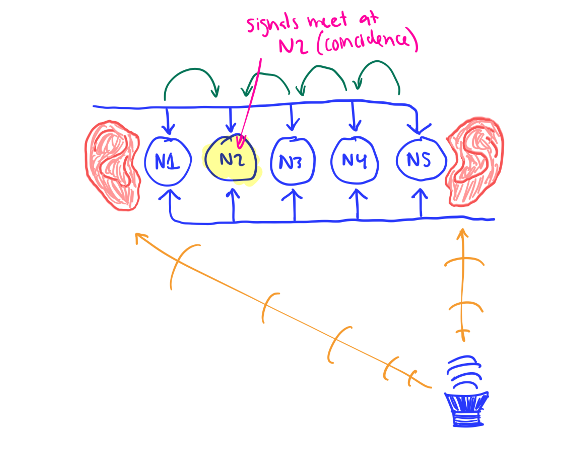 signals meet at
N2 (coincidence)
N1 N2 N3 N4 N5